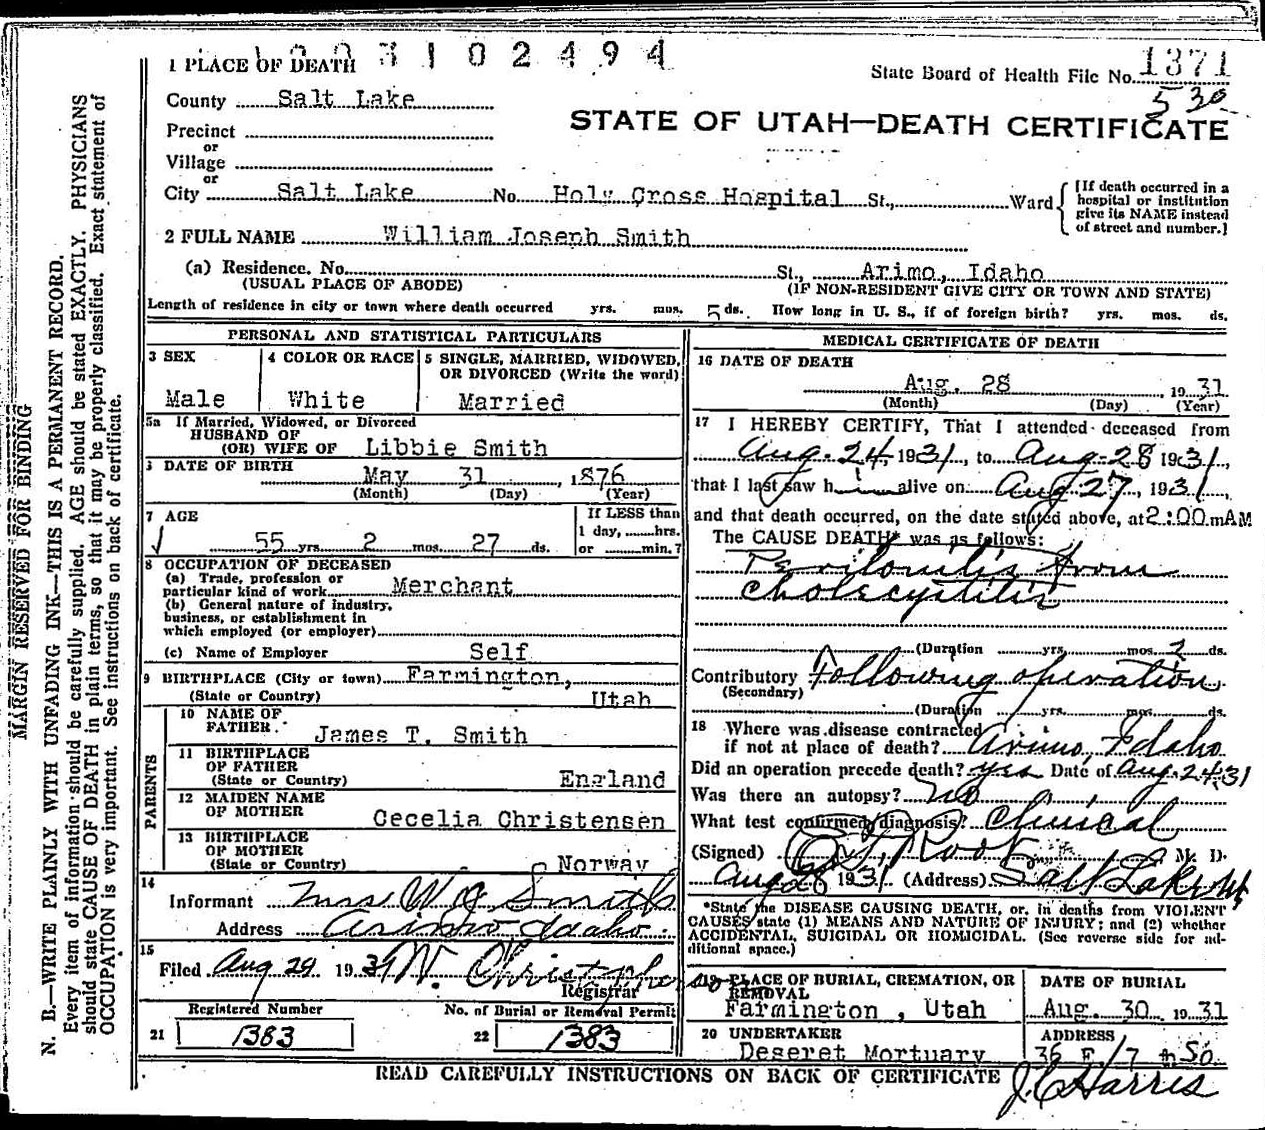 1 PLACE OF DEATH 3102494
State Board of Health File No. 1371
530
County Salt Lake
STATE OF UTAH—DEATH CERTIFICATE
Precinct
or
Village
or
City Salt Lake No. Holy Cross Hospital St., Ward
[If death occurred in a
hospital or institution
give its NAME instead
of street and number.]
2 FULL NAME William Joseph Smith
(a) Residence. No. St., Arimo, Idaho
(USUAL PLACE OF ABODE) (IF NON-RESIDENT GIVE CITY OR TOWN AND STATE)
Length of residence in city or town where death occurred yrs. mos. 5 ds. How long in U. S., if of foreign birth? yrs. mos. ds.
PERSONAL AND STATISTICAL PARTICULARS
3 SEX
Male
4 COLOR OR RACE
White
5 SINGLE, MARRIED, WIDOWED,
OR DIVORCED (Write the word)
Married
5a If Married, Widowed, or Divorced
HUSBAND OF
(OR) WIFE OF Libbie Smith
DATE OF BIRTH
May 31, 1876
(Month) (Day) (Year)
7 AGE
55 yrs. 2 mos. 27 ds.
If LESS than
1 day, hrs.
or min.?
8 OCCUPATION OF DECEASED
(a) Trade, profession or
particular kind of work Merchant
(b) General nature of industry,
business, or establishment in
which employed (or employer)
(c) Name of Employer Self
9 BIRTHPLACE (City or town) Farmington,
(State or Country) Utah
PARENTS
10 NAME OF
FATHER. James T. Smith
11 BIRTHPLACE
OF FATHER
(State or Country) England
12 MAIDEN NAME
OF MOTHER Cecelia Christensen
13 BIRTHPLACE
OF MOTHER
(State or Country) Norway
14
Informant Mrs W J Smith
Address Arimo Idaho.
15
Filed Aug 29 1931
Registrar
Registered Number No. of Burial or Removal Permit
21 1383 22 1383
MEDICAL CERTIFICATE OF DEATH
16 DATE OF DEATH
Aug. 28, 1931
(Month) (Day) (Year)
17 I HEREBY CERTIFY, That I attended deceased from
Aug. 24, 1931, to Aug. 28 1931,
that I last saw him alive on Aug 27, 1931,
and that death occurred, on the date stated above, at 2:00 m AM
The CAUSE DEATH* was as follows:
Peritonitis from
Cholecystitis
(Duration yrs. mos. 2 ds.
Contributory Following operation
(Secondary)
(Duration yrs. mos. ds.
18 Where was disease contracted
if not at place of death? Arimo, Idaho
Did an operation precede death? yes Date of Aug. 24 31
Was there an autopsy? no
What test confirmed diagnosis? Clinical
(Signed) Root M. D.
Aug 28 1931 (Address) Salt Lake
*State the DISEASE CAUSING DEATH, or, in deaths from VIOLENT
CAUSES state (1) MEANS AND NATURE OF INJURY; and (2) whether
ACCIDENTAL, SUICIDAL OR HOMICIDAL. (See reverse side for ad-
ditional space.)
19 PLACE OF BURIAL, CREMATION, OR
REMOVAL
Farmington, Utah
DATE OF BURIAL
Aug. 30 1931
20 UNDERTAKER
Deseret Mortuary
ADDRESS
36 E 17 th So.
READ CAREFULLY INSTRUCTIONS ON BACK OF CERTIFICATE
J. C. Harris
MARGIN RESERVED FOR BINDING
N. B.—WRITE PLAINLY WITH UNFADING INK—THIS IS A PERMANENT RECORD.
Every item of information should be carefully supplied. AGE should be stated EXACTLY. PHYSICIANS
should state CAUSE OF DEATH in plain terms, so that it may be properly classified. Exact statement of
OCCUPATION is very important. See instructions on back of certificate.